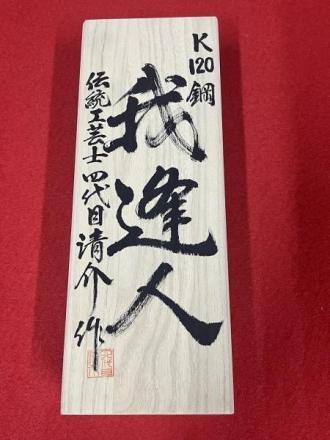 K120鋼
我逢人
伝統工芸士 四代目清介 作